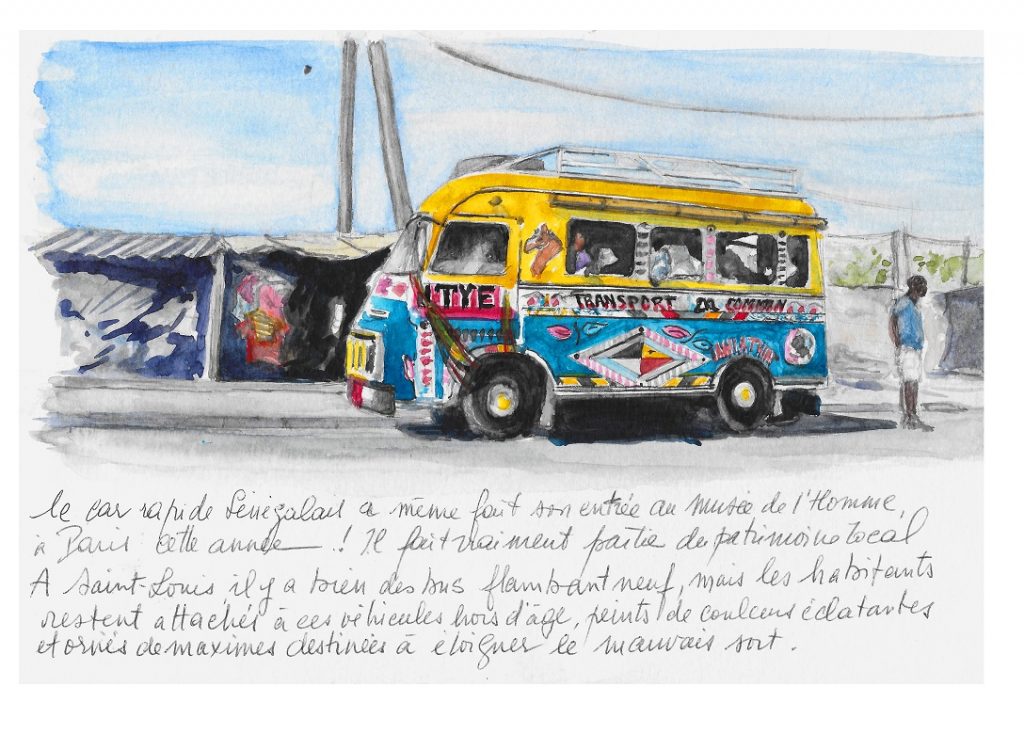 TYE
TRANSPORT EN COMMUN
le car rapide Sénégalais a même fait son entrée au musée de l'Homme,
à Paris cette année _ .! Il fait vraiment partie du patrimoine local
A Saint-Louis il y a bien des bus flambant neuf, mais les habitants
restent attachés à ces véhicules hors d'âge, peints de couleurs éclatantes
et ornés de maximes destinées à éloigner le mauvais sort.